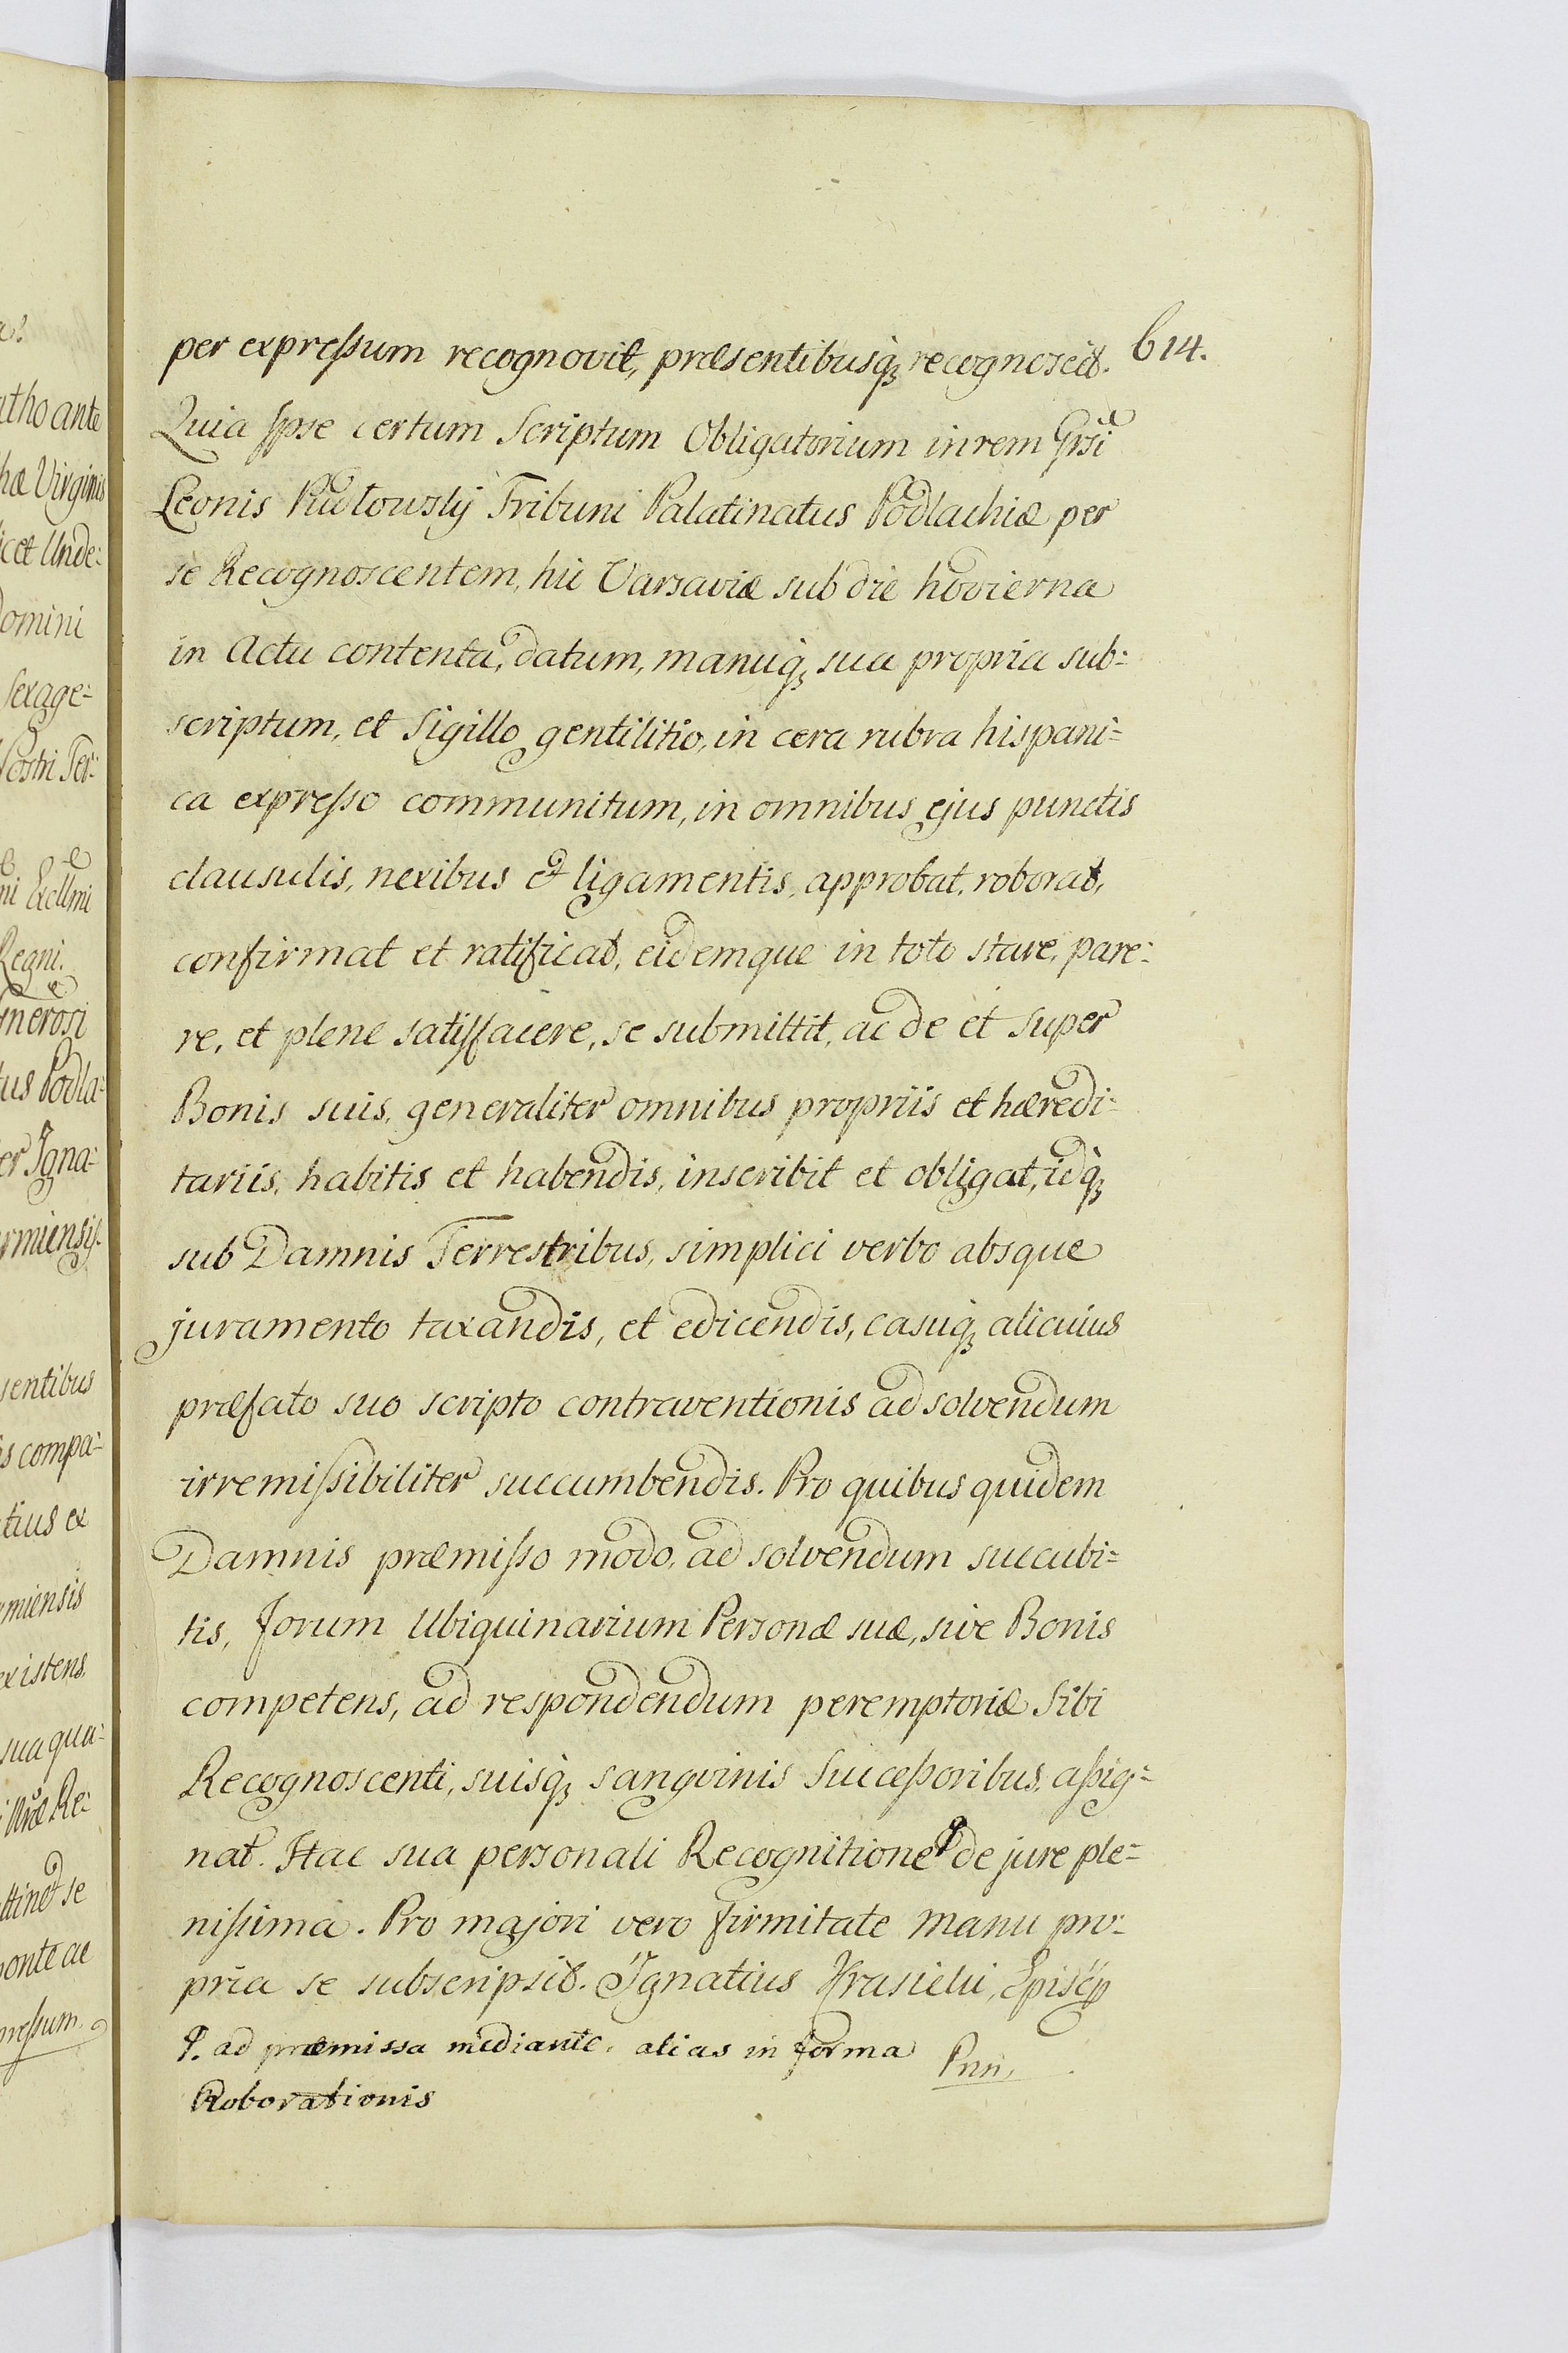 614.
per expressum recognovit, præsentibusq; recognoscit.
Quia Ipse certum Scriptum Obligatorium in rem Grsi
Leonis Pudłowskÿ Tribuni Palatinatus Podlachiæ per
se Recognoscentem, hic Varsaviæ sub die hodierna
in Actu contenta, datum, manuq; sua propria sub=
scriptum, et Sigillo gentilitio, in cera rubra hispani=
ca expresso communitum, in omnibus ejus punctis
clausulis, nexibus et ligamentis, approbat, roborat,
confirmat et ratificat, eidemque in toto stare, pare=
re, et plene satisfacere, se submittit, ac de et super
Bonis suis, generaliter omnibus propriis et hæredi=
tariis, habitis et habendis, inscribit et obligat, idq;
sub Damnis Terrestribus, simplici verbo absque
juramento taxandis, et edicendis, casuq; alicuius
præfato suo scripto contraventionis ad solvendum
irremissibiliter succumbendis. Pro quibus quidem
Damnis præmisso modo, ad solvendum succubi=
tis, forum Ubiquinarium Personæ suæ, sive Bonis
competens, ad respondendum peremptoriæ Sibi
Recognoscenti, suisq; sangvinis Successoribus, assig=
nat. Hac sua personali Recognitione de jure ple=
nissima. Pro majori vero firmitate manu pro=
pria se subscripsit. Ignatius Krasicki, Episcp
ad præmissa mediante. alias in forma
Roborationis
Pnn,
atho ante
hæ Virginis
ic et Unde=
Domini
sexage=
Nostri Ser=
ni Excllmi
Regni.
nerosi
tus Podla=
er Igna=
rmiensis
sentibus
s compa=
tius ex
miensis
existens
sua qua=
ttinet se
ponte ac
pressum.